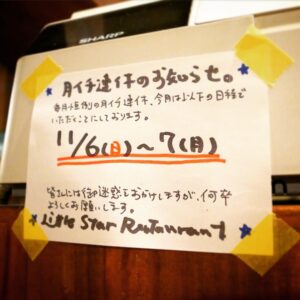 SHARP
月イチ連休のお知らせ。
毎月恒例の月イチ連休、今月は以下の日程で
いただくことにしております。
11/6(日)~7(月)
皆さんには御迷惑をおかけしますが、何卒
よろしくお願いします。
Little Star Restaurant